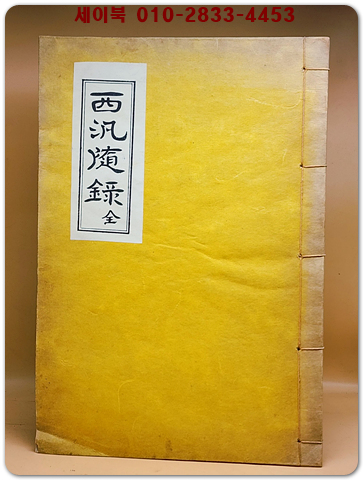 세이북 010-2833-4453
西汎隨錄 全